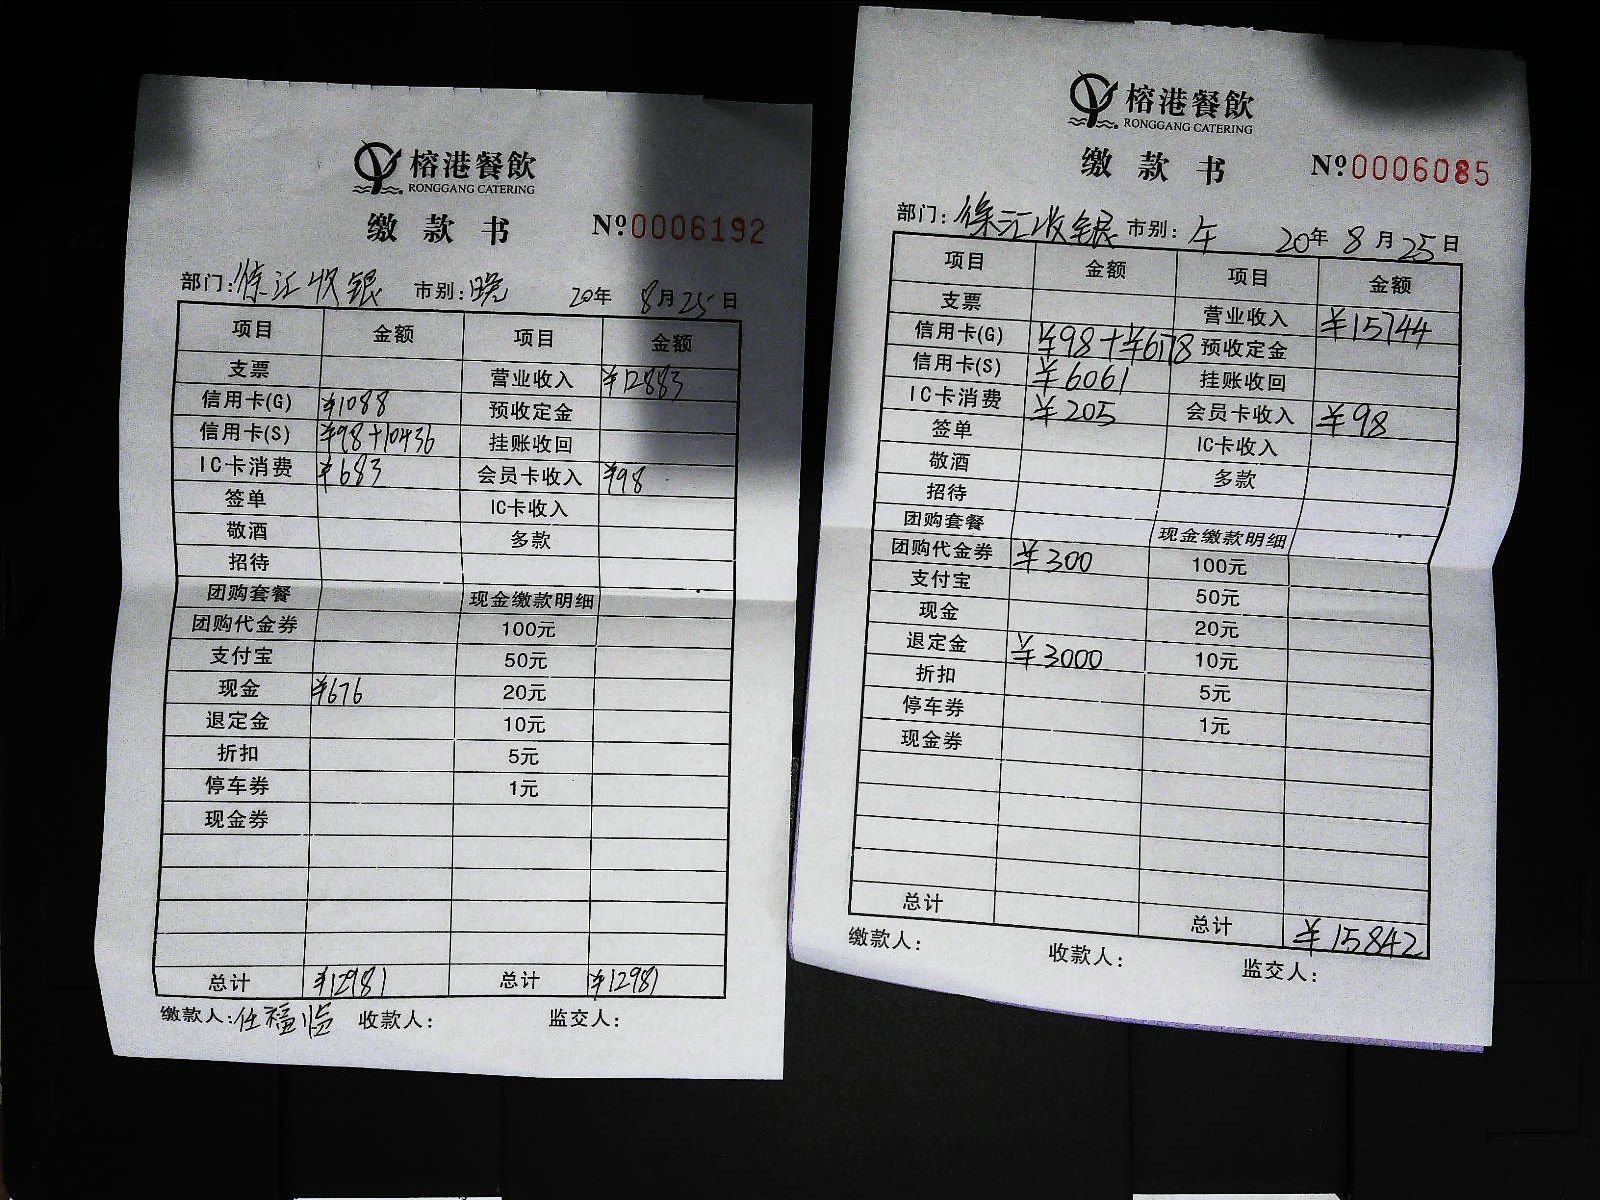 榕港餐飲
RONGGANG CATERING
缴款书 №0006192
部门:徐汇收银 市别:晚 20年 8月25日
项目 金额 项目 金额
支票 营业收入 ¥12883
信用卡(G) ¥1088 预收定金
信用卡(S) ¥98+10436 挂账收回
IC卡消费 ¥683 会员卡收入 ¥98
签单 IC卡收入
敬酒 多款
招待
团购套餐 现金缴款明细
团购代金券 100元
支付宝 50元
现金 ¥676 20元
退定金 10元
折扣 5元
停车券 1元
现金券
总计 ¥12981 总计 ¥12981
缴款人:任福临 收款人: 监交人:
榕港餐飲
RONGGANG CATERING
缴款书 №0006085
部门:徐汇收银 市别:午 20年 8月25日
项目 金额 项目 金额
支票 营业收入 ¥15744
信用卡(G) ¥98+¥6178 预收定金
信用卡(S) ¥6061 挂账收回
IC卡消费 ¥205 会员卡收入 ¥98
签单 IC卡收入
敬酒 多款
招待
团购套餐 现金缴款明细
团购代金券 ¥300 100元
支付宝 50元
现金 20元
退定金 ¥3000 10元
折扣 5元
停车券 1元
现金券
总计 总计 ¥15842
缴款人: 收款人: 监交人: